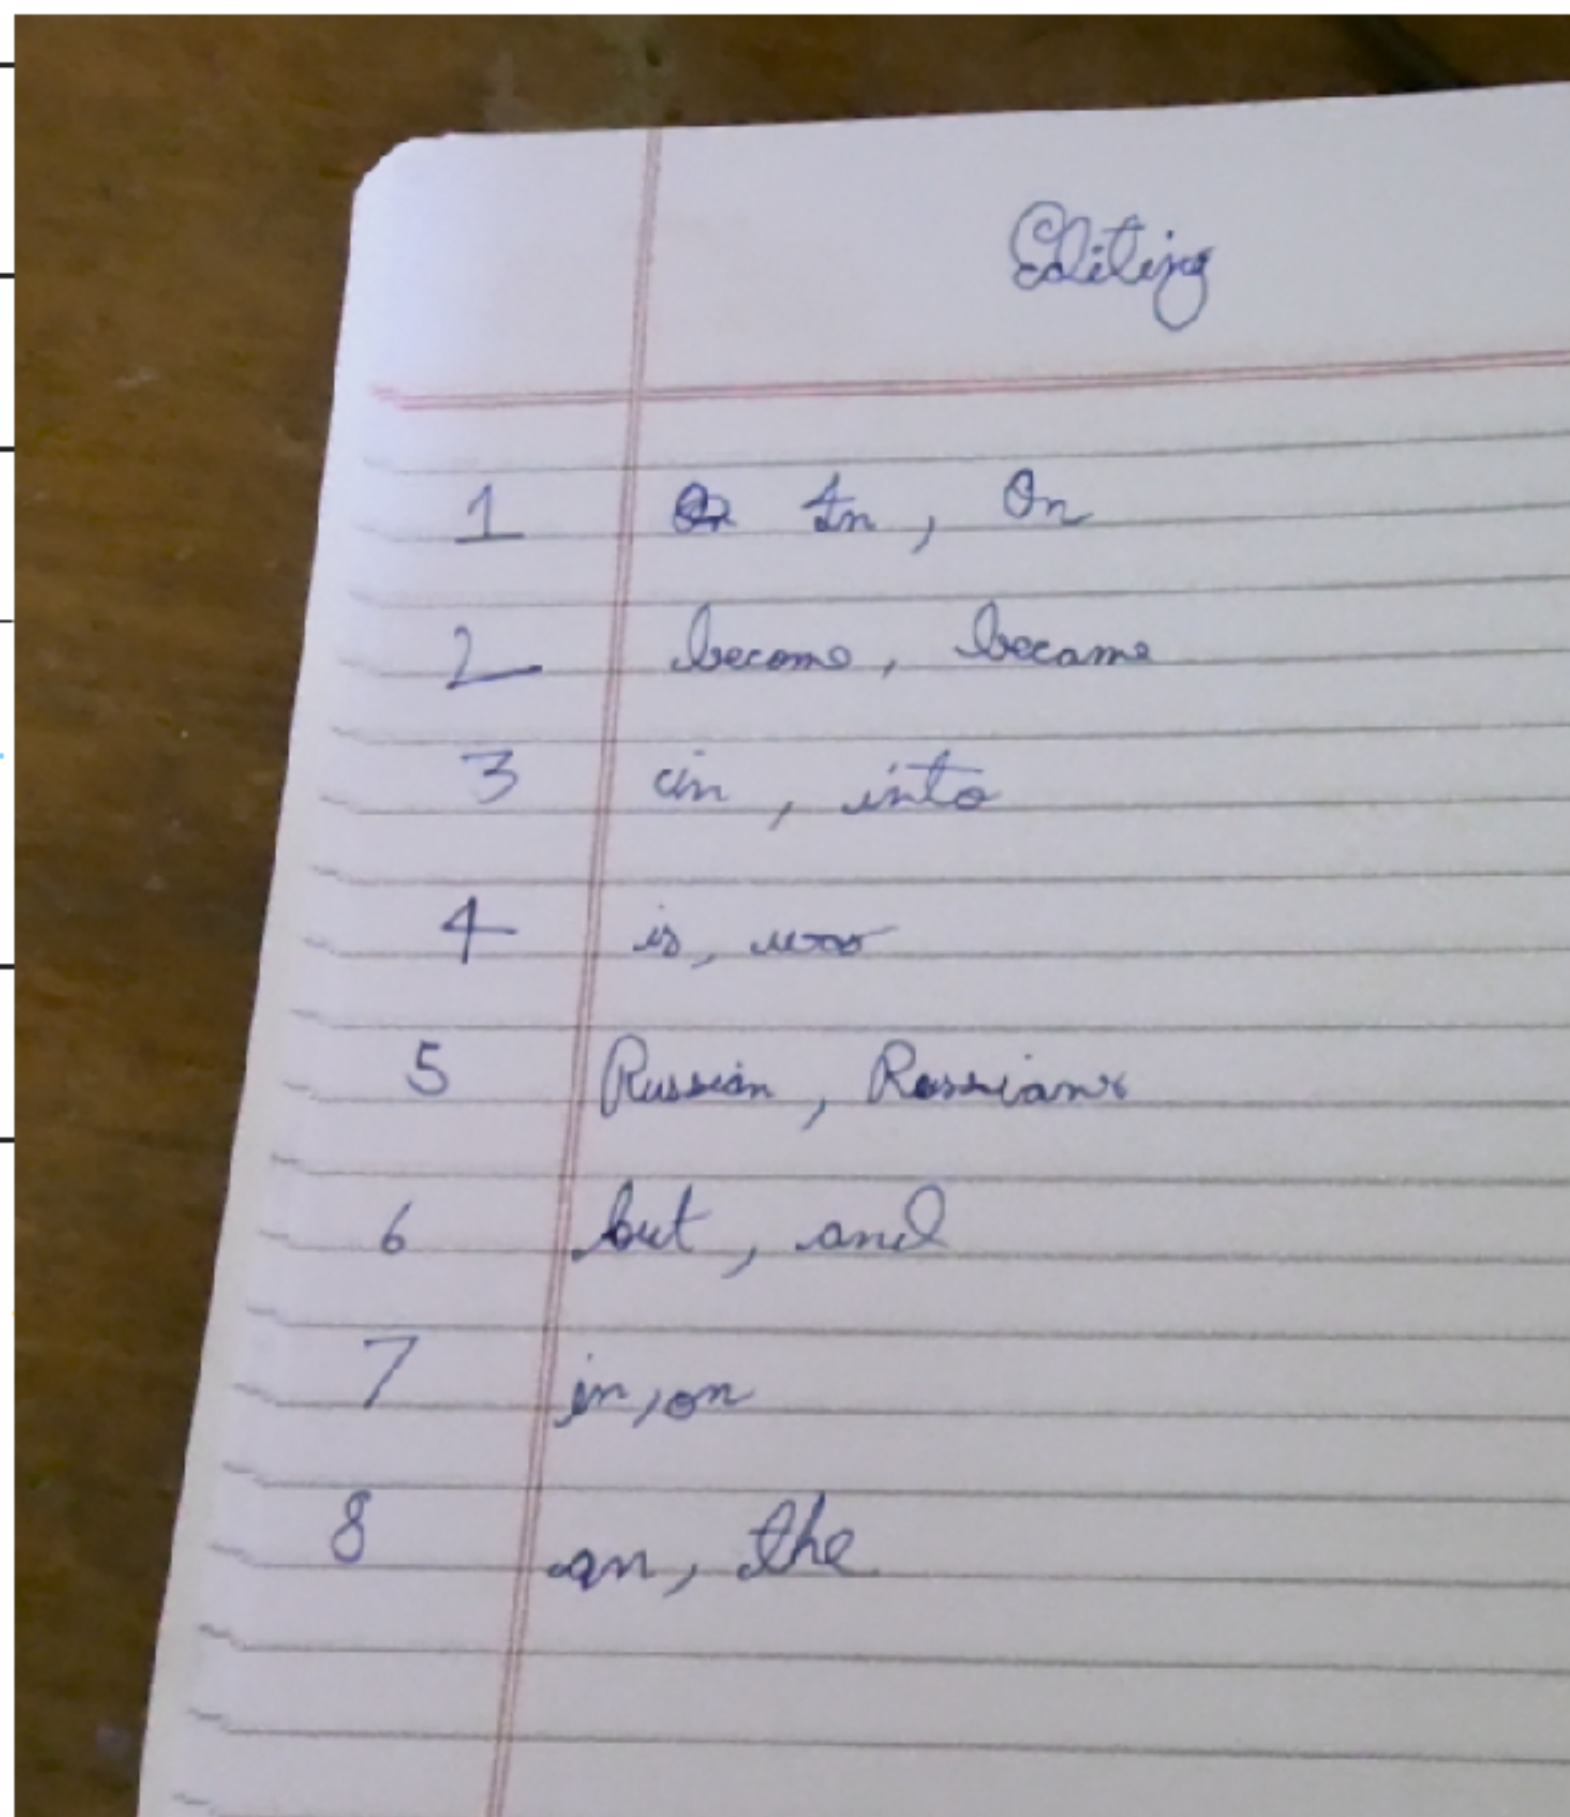 Editing
1 In, On
2 become, became
3 in, into
4 is, was
5 Russian, Russians
6 but, and
7 in, on
8 an, the